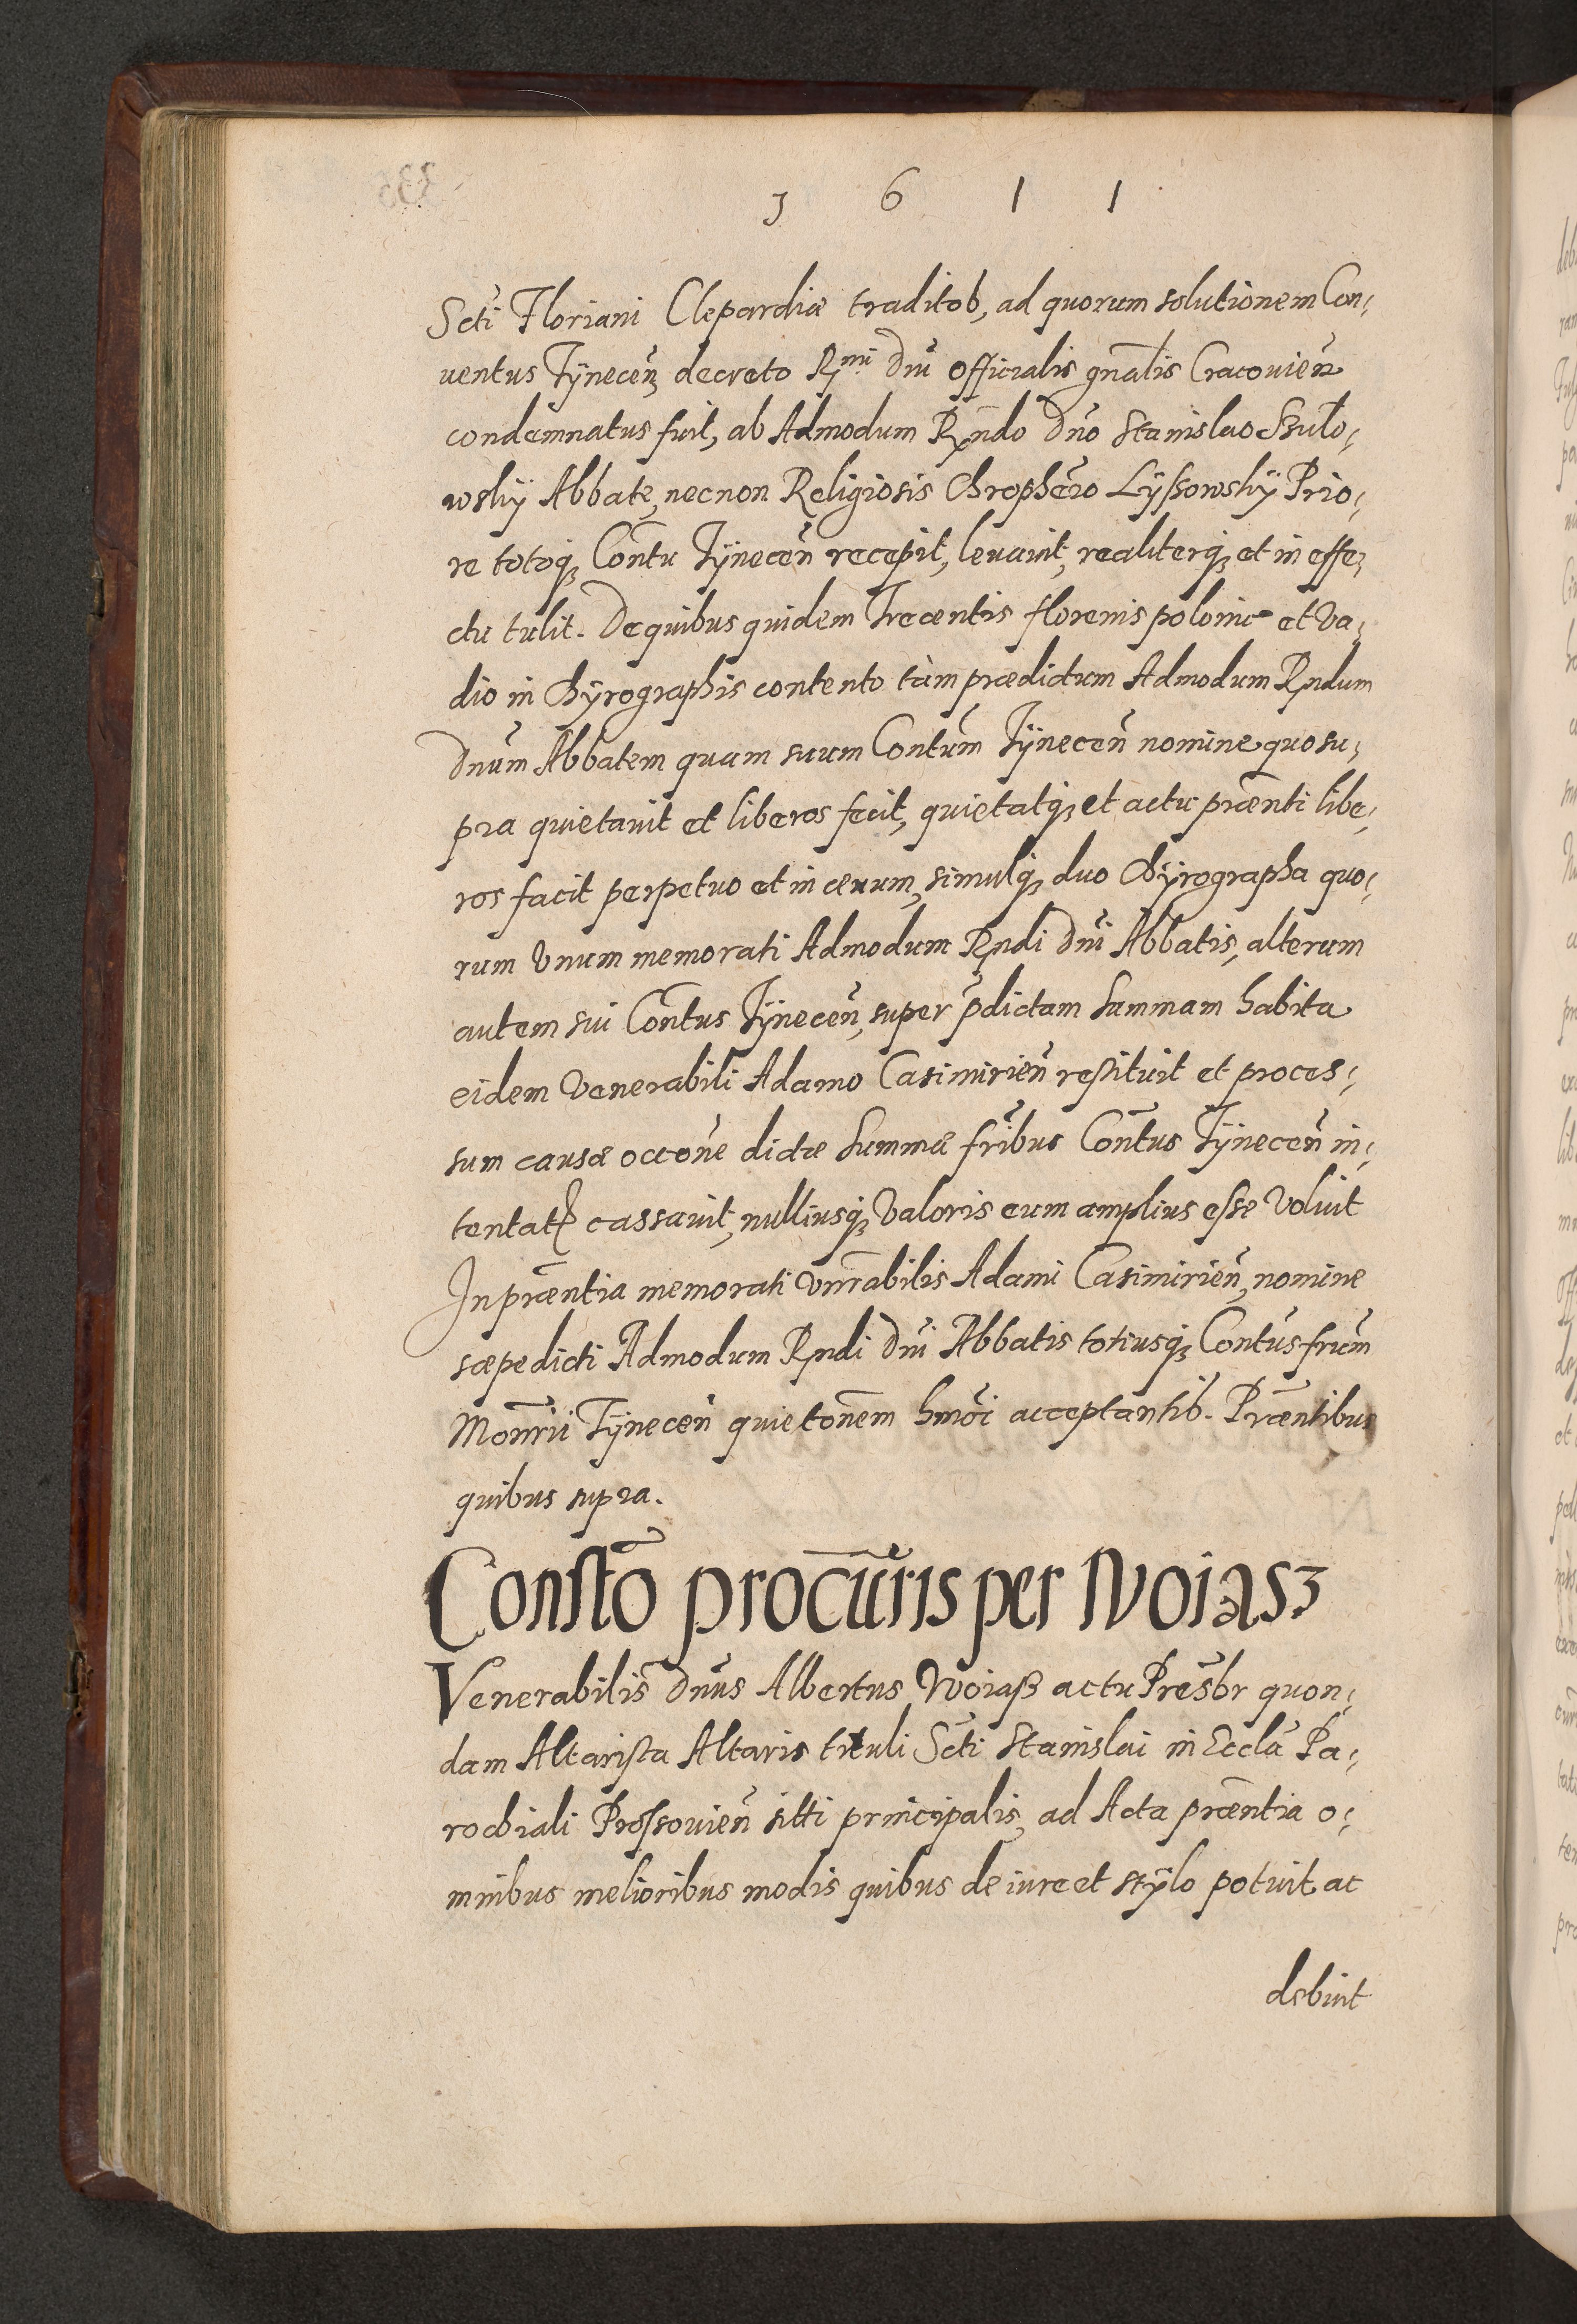 1 6 1 1
Scti Floriani Clepardiæ traditob, ad quorum solutionem Con¿
uentus Tÿnecen̄ decreto Rmi Dni officialis gnālis Cracovien̄
condemnatus fuit, ab Admodum Rndo Dno Stanislao Szuło¿
wskÿ Abbate, necnon Religiosis Chrophero Lÿssowskÿ Prio¿
re totoq₃ Contu Tÿnecen̄ recepit, leuauit, realiterq₃ et in effe¿
ctu tulit. De quibus quidem Trecentis florenis polonic et Va¿
dio in Chÿrographis contento tàm prædictum Admodum Rndum
Dnum Abbatem quam suum Contum Tÿnecen̄ nomine quo su¿
pra quietauit et liberos fecit, quietatq₃ et actu prænti libe¿
ros facit perpetuo et in æuum, simulq₃ duo Chÿrographa quo¿
rum Vnum memorati Admodum Rndi Dni Abbatis, alterum
autem sui Contus Tÿnecen̄, super p̄dictam summam habita
eidem Venerabili Adamo Casimirien̄ restituit et proces¿
sum causæ occone dictæ summæ fribus Contus Tÿnecen̄ in¿
tentat cassauit, nulliusq₃ Valoris eum amplius esse Voluit
In præntia memorati Vnrabilis Adami Casimirien̄, nomine
sæpedicti Admodum Rndi Dni Abbatis totiusq₃ Contus frum
Monrii Tÿnecen̄ quietonem hmoi acceptantib. Præntibus
quibus supra.
Constō procūris per Woiasz
Venerabilis Dnus Albertus Woiaß actu Presbr quon¿
dam Altarista Altaris tituli Scti Stanislai in Eccla Pa¿
rochiali Prossouien̄ sitti principalis, ad Acta præntia o¿
mnibus melioribus modis quibus de iure et stÿlo potuit ac
debuit